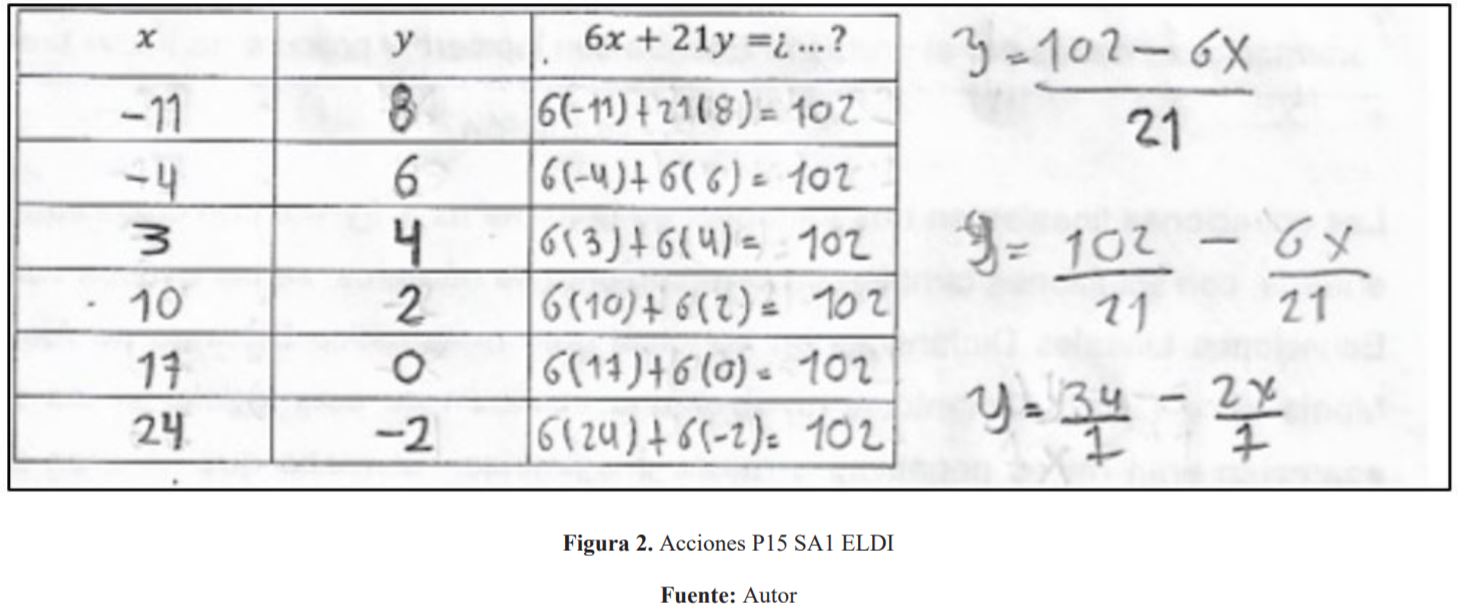 x y 6x + 21y =¿...?
-11 8 6(-11)+21(8)= 102
-4 6 6(-4)+6(6)= 102
3 4 6(3)+6(4)= 102
10 -2 6(10)+6(2)= 102
17 0 6(17)+6(0)= 102
24 -2 6(24)+6(-2)= 102
y = 102 - 6x / 21
y = 102/21 - 6x/21
y = 34/7 - 2x/7
Figura 2. Acciones P15 SA1 ELDI
Fuente: Autor